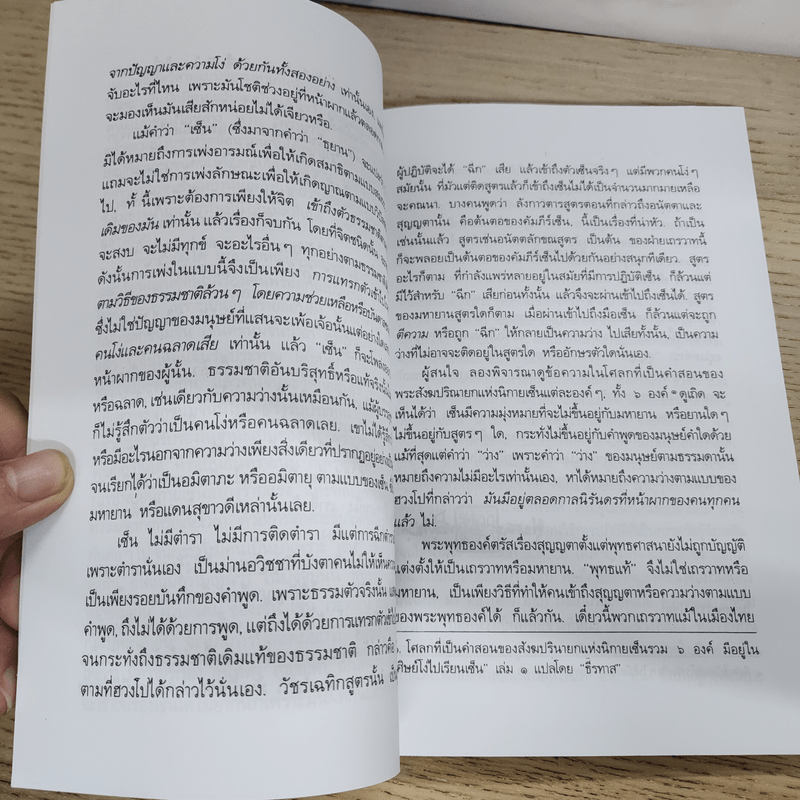 จากปัญญาและความโง่ ด้วยกันทั้งสองอย่าง เท่านั้นเอง.
จับอะไรที่ไหน เพราะมันโชติช่วงอยู่ที่หน้าผากแล้วตลอด
จะมองเห็นมันเสียสักหน่อยไม่ได้เจียวหรือ.
แม้คำว่า “เซ็น” (ซึ่งมาจากคำว่า “ธฺยาน”)
มิได้หมายถึงการเพ่งอารมณ์เพื่อให้เกิดสมาธิตามแบบ
แถมจะไม่ใช่การเพ่งลักษณะเพื่อให้เกิดญาณตามแบบ
ไป. ทั้งนี้เพราะต้องการเพียงให้จิต เข้าถึงตัวธรรมชาติ
เดิมของมัน เท่านั้น แล้วเรื่องก็จบกัน โดยที่จิตชนิดนั้น
จะสงบ จะไม่มีทุกข์ จะอะไรอื่นๆ ทุกอย่างตามธรรมชาติ
ดังนั้นการเพ่งในแบบนี้จึงเป็นเพียง การแทรกตัวเข้าไป
ตามวิธีของธรรมชาติล้วนๆ โดยความช่วยเหลือหรือบันดาล
ซึ่งไม่ใช่ปัญญาของมนุษย์ที่แสนจะเพ้อเจ้อนั้นแต่อย่างใด
คนโง่และคนฉลาดเสีย เท่านั้น แล้ว “เซ็น” ก็จะโพล่ง
หน้าผากของผู้นั้น. ธรรมชาติอันบริสุทธิ์หรือแท้จริงนั้น
หรือฉลาด, เช่นเดียวกับความว่างนั้นเหมือนกัน, แม้ผู้บรรลุ
ก็ไม่รู้สึกตัวว่าเป็นคนโง่หรือคนฉลาดเลย. เขาไม่ได้รู้สึก
หรือมีอะไรนอกจากความว่างเพียงสิ่งเดียวที่ปรากฏอยู่
จนเรียกได้ว่าเป็นอมิตาภะ หรืออมิตายุ ตามแบบของเซ็น
มหายาน หรือแดนสุขาวดีเหล่านั้นเลย.
เซ็น ไม่มีตำรา ไม่มีการติดตำรา มีแต่การฉีกตำรา
เพราะตำรานั่นเอง เป็นม่านอวิชชาที่บังตาคนไม่ให้เห็น
เป็นเพียงรอยบันทึกของคำพูด. เพราะธรรมตัวจริงนั้น
คำพูด, ถึงไม่ได้ด้วยการพูด, แต่ถึงได้ด้วยการแทรกตัวเข้าไป
จนกระทั่งถึงธรรมชาติเดิมแท้ของธรรมชาติ กล่าวคือ
ตามที่ฮวงโปได้กล่าวไว้นั่นเอง. วัชรเฉทิกสูตรนั้น
ผู้ปฏิบัติจะได้ “ฉีก” เสีย แล้วเข้าถึงตัวเซ็นจริงๆ แต่มีพวกคนโง่ๆ
สมัยนั้น ที่มัวแต่ติดสูตรแล้วก็เข้าถึงเซ็นไม่ได้เป็นจำนวนมากมายเหลือ
จะคณนา. บางคนพูดว่า ลังกาวตารสูตรตอนที่กล่าวถึงอนัตตาและ
สุญญตานั้น คือต้นตอของคัมภีร์เซ็น, นี้เป็นเรื่องที่น่าหัว. ถ้าเป็น
เช่นนั้นแล้ว สูตรเช่นอนัตตลักขณสูตร เป็นต้น ของฝ่ายเถรวาทนี้
ก็จะพลอยเป็นต้นตอของคัมภีร์เซ็นไปด้วยกันอย่างสนุกทีเดียว. สูตร
อะไรก็ตาม ที่กำลังแพร่หลายอยู่ในสมัยที่มีการปฏิบัติเซ็น ก็ล้วนแต่
มีไว้สำหรับ “ฉีก” เสียก่อนทั้งนั้น แล้วจึงจะผ่านเข้าไปถึงเซ็นได้. สูตร
ของมหายานสูตรใดก็ตาม เมื่อผ่านเข้าไปถึงมือเซ็น ก็ล้วนแต่จะถูก
ตีความ หรือถูก “ฉีก” ให้กลายเป็นความว่าง ไปเสียทั้งนั้น, เป็นความ
ว่างที่ไม่อาจจะติดอยู่ในสูตรใด หรืออักษรตัวใดนั่นเอง.
ผู้สนใจ ลองพิจารณาดูข้อความในโศลกที่เป็นคำสอนของ
พระสังฆปริณายกแห่งนิกายเซ็นแต่ละองค์ๆ, ทั้ง ๖ องค์ ดูเถิด จะ
เห็นได้ว่า เซ็นมีความมุ่งหมายที่จะไม่ขึ้นอยู่กับมหายาน หรือยานใดๆ
ไม่ขึ้นอยู่กับสูตรๆ ใด, กระทั่งไม่ขึ้นอยู่กับคำพูดของมนุษย์คำใดด้วย
แม้ที่สุดแต่คำว่า “ว่าง” เพราะคำว่า “ว่าง” ของมนุษย์ตามธรรมดานั้น
หมายถึงความไม่มีอะไรเท่านั้นเอง, หาได้หมายถึงความว่างตามแบบของ
ฮวงโปที่กล่าวว่า มันมีอยู่ตลอดกาลนิรันดรที่หน้าผากของคนทุกคน
แล้ว ไม่.
พระพุทธองค์ตรัสเรื่องสุญญตาตั้งแต่พุทธศาสนายังไม่ถูกบัญญัติ
แต่งตั้งให้เป็นเถรวาทหรือมหายาน. “พุทธแท้” จึงไม่ใช่เถรวาทหรือ
มหายาน, เป็นเพียงวิธีที่ทำให้คนเข้าถึงสุญญตาหรือความว่างตามแบบ
ของพระพุทธองค์ได้ ก็แล้วกัน. เดี๋ยวนี้พวกเถรวาทแม้ในเมืองไทย
. โศลกที่เป็นคำสอนของสังฆปรินายกแห่งนิกายเซ็นรวม ๖ องค์ มีอยู่ใน
ศิษย์โง่ไปเรียนเซ็น” เล่ม ๑ แปลโดย “ธีรทาส”